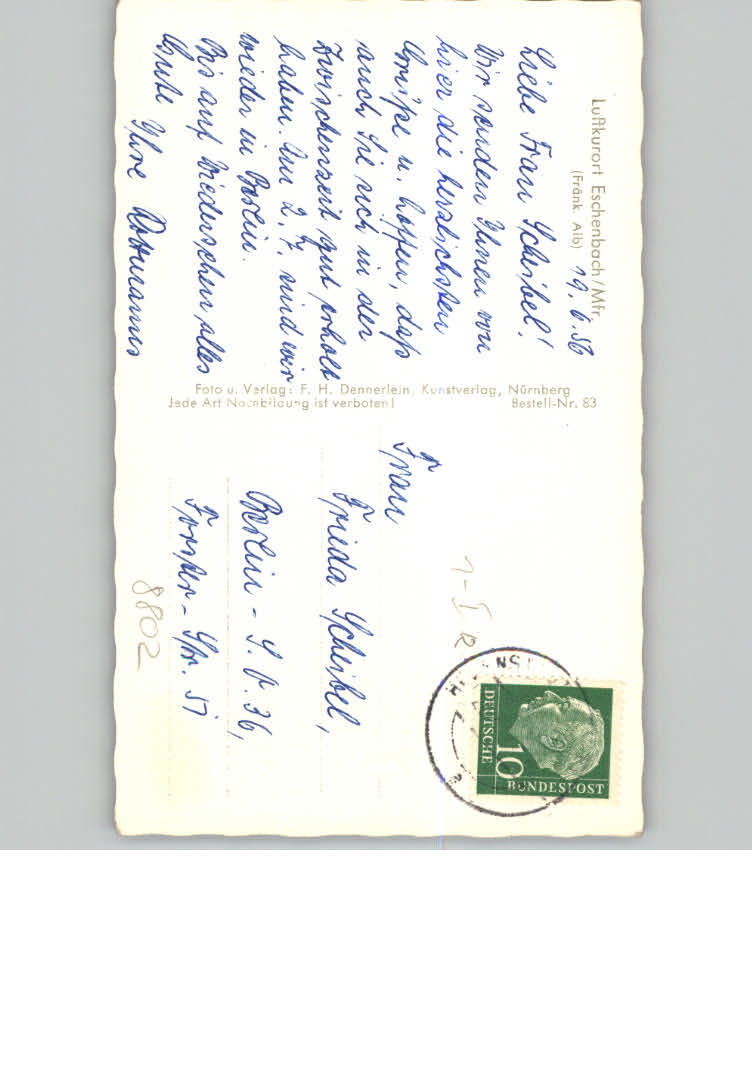 Luftkurort Eschenbach/Mfr.
(Fränk. Alb)
19. 6. 56
Liebe Frau Scheibel!
Wir senden Ihnen von
hier die herzlichsten
Grüße u. hoffen, daß
auch Sie sich in der
Zwischenzeit gut erholt
haben. Am 2. 7. sind wir
wieder in Berlin.
Bis auf Wiedersehen alles
Gute Ihre
Foto u. Verlag: F. H. Dennerlein, Kunstverlag, Nürnberg
Jede Art Nachbildung ist verboten! Bestell-Nr. 83
Frau
Frieda Scheibel,
Berlin - S. O. 36,
Forster - Str. 51
8802
DEUTSCHE
BUNDESPOST
10